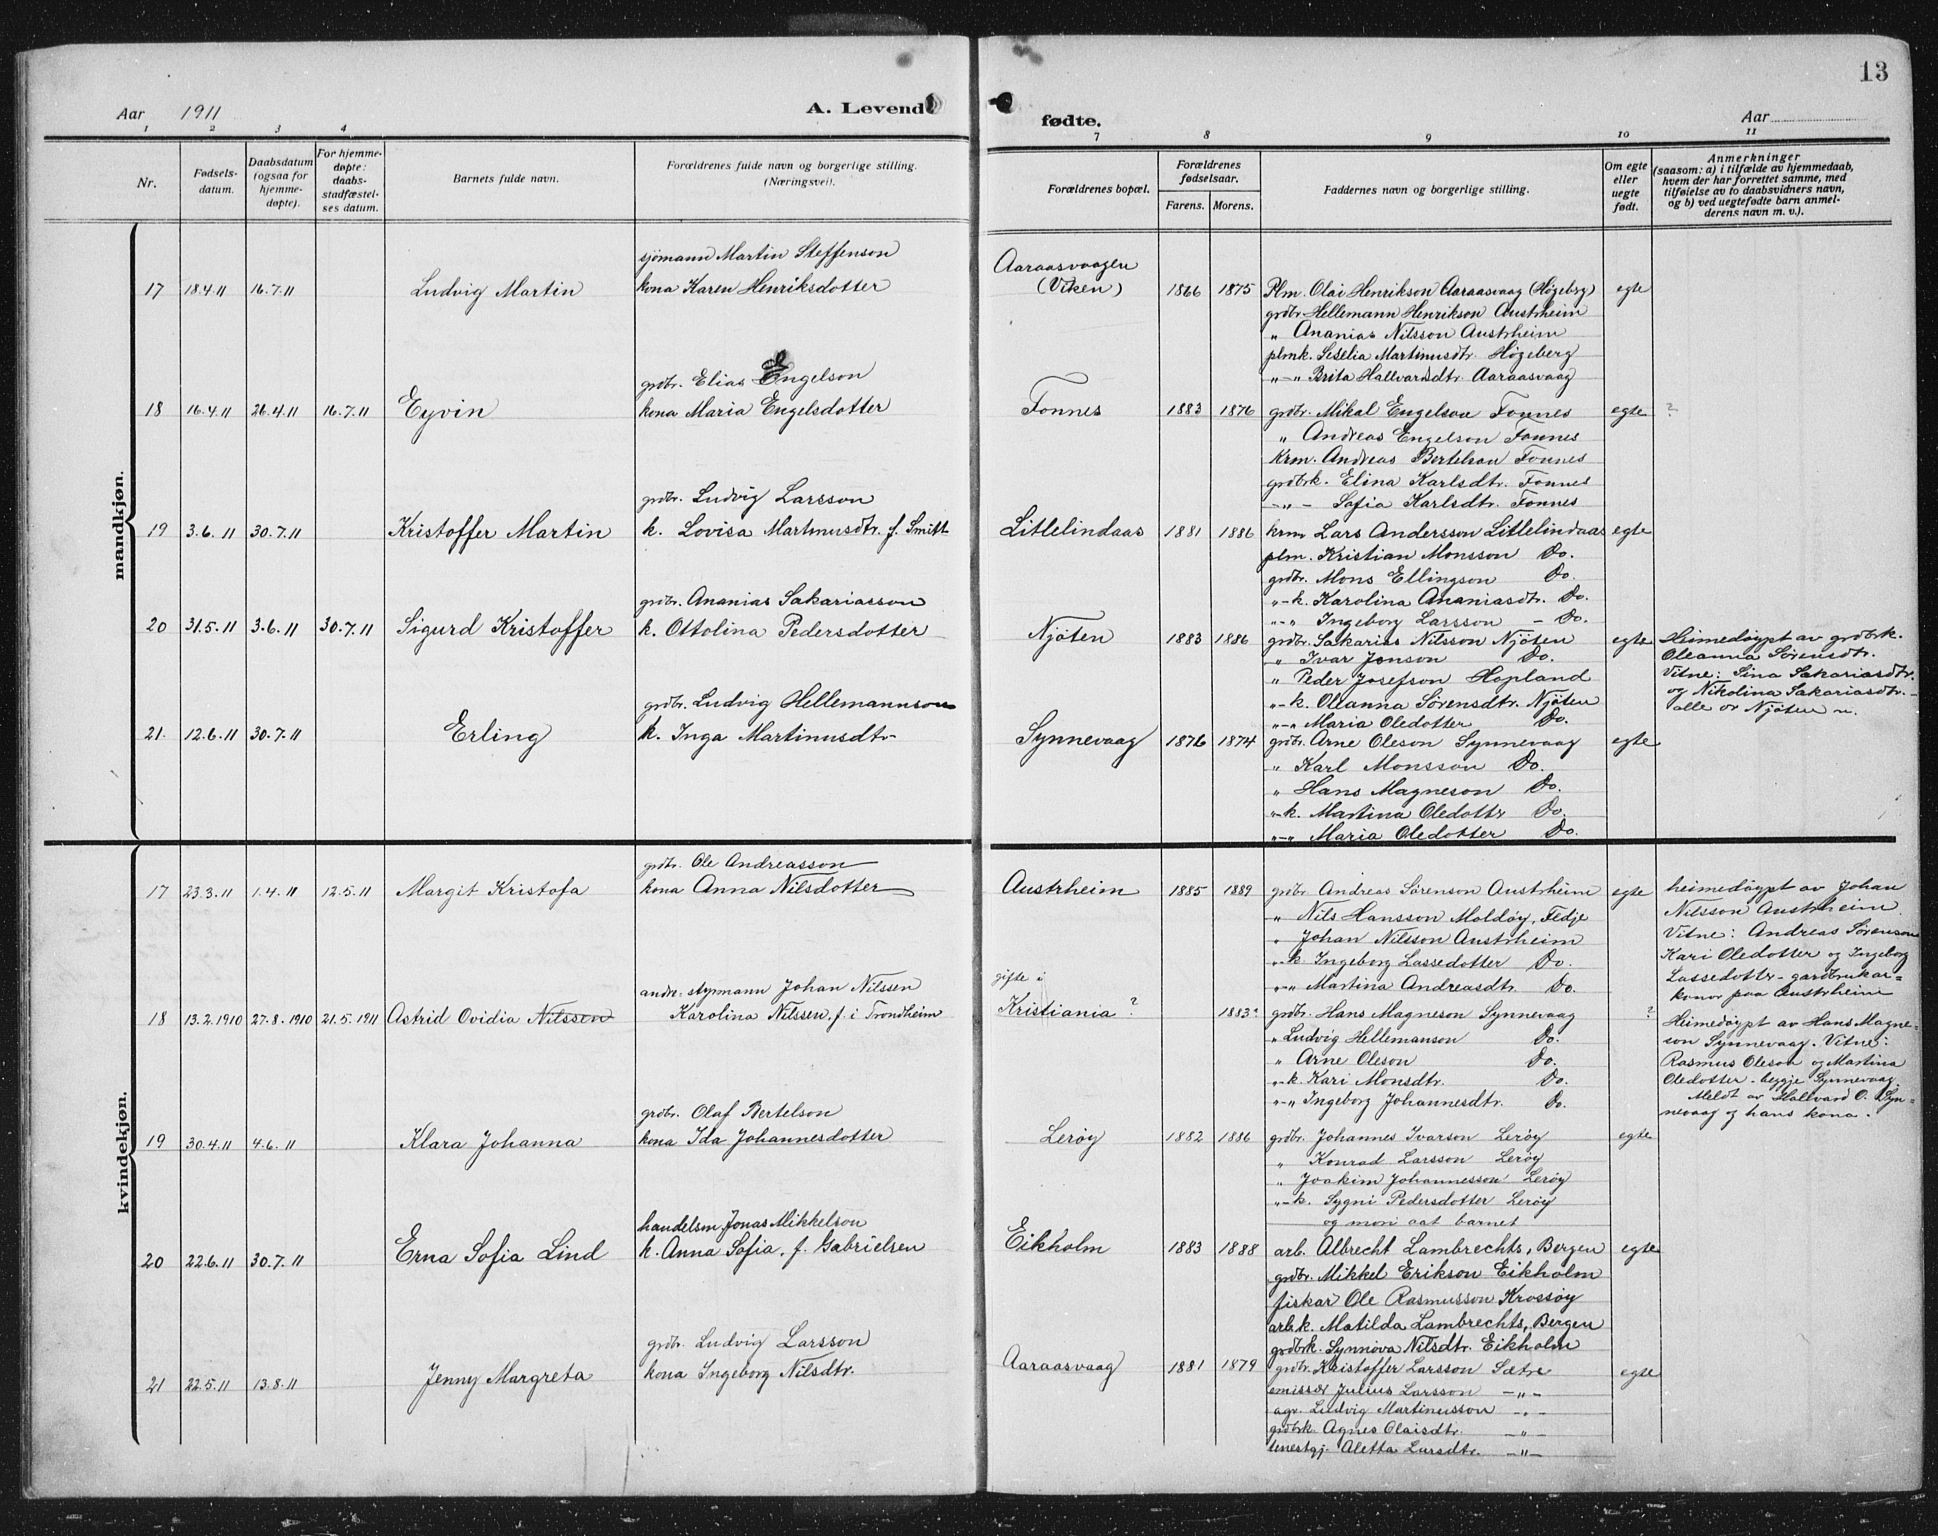 13
Aar 1911
A. Levende
fødte.
Aar
1 2 3 4
7 8 9 10 11
Nr.
Fødsels-
datum.
Daabsdatum
(ogsaa for
hjemme-
døpte).
For hjemme-
døpte:
daabs-
stadfæstel-
ses datum.
Barnets fulde navn.
Forældrenes fulde navn og borgerlige stilling.
(Næringsvei).
Forældrenes bopæl.
Forældrenes
fødselsaar.
Farens. Morens.
Faddernes navn og borgerlige stilling.
Om egte
eller
uegte
født.
Anmerkninger
(saasom: a) i tilfælde av hjemmedaab,
hvem der har forrettet samme, med
tilføielse av to daabsvidners navn,
og b) ved uegtefødte barn anmel-
derens navn m. v.).
mandkjøn.
sjömann Martin Steffenson
Aaraasvaagen
17 18.4.11 16.7.11 Ludvig Martin kona Karen Henriksdotter (Viken) 1866 1875 Plm. Olai Henrikson Aaraasvaag (Högeberg) egte
grdbr. Hellemann Henrikson Austrheim
„ Ananias Nilsson Austrheim
plmk. Seselia Martinusdtr. Högeberg
„-„ Brita Hallvardsdtr. Aaraasvaag
grdbr. Elias Engelson
18 16.4.11 26.4.11 16.7.11 Eyvin kona Maria Engelsdotter Fonnes 1883 1876 grdbr. Mikal Engelson Fonnes egte ?
„ Andreas Engelson Fonnes
Krm. Andreas Bertelson Fonnes
grdbrk. Elina Karlsdtr. Fonnes
-„- Sofia Karlsdtr. Fonnes
grdbr. Ludvig Larsson
19 3.6.11 30.7.11 Kristoffer Martin k. Lovisa Martinusdtr. f. Smitt Litlelindaas 1881 1886 krm Lars Andersson Litlelindaas egte
plm. Kristian Monsson Do.
grdbr. Mons Ellingson Do.
„-k. Karolina Ananiasdtr. Do.
„-„ Ingeborg Larsson - Do.
grdbr. Ananias Sakariasson
20 31.5.11 3.6.11 30.7.11 Sigurd Kristoffer k. Ottolina Pedersdotter Njöten 1883 1886 grdbr. Sakarias Nilsson Njöten egte Heimedöypt av grdbrk.
„ Ivar Jonson Do. Oleanna Sörensdtr.
„ Peder Josefson Hopland Vitne: Sina Sakariasdtr.
„-k. Oleanna Sörensdtr. Njöten og Nikolina Sakariasdtr. -
„-„ Maria Oledotter Do. alle or Njöten
grdbr. Ludvig Hellemannson
21. 12.6.11 30.7.11 Erling k. Inga Martinusdtr Synnevaag 1876 1874 grdbr. Arne Oleson Synnevaag egte
„ Karl Monsson Do.
„ Hans Magneson Do.
„-k. Martina Oledottr Do.
„-„ Maria Oledotter Do.
kvindekjøn.
grdbr. Ole Andreasson
17 23.3.11 1.4.11 12.5.11 Margit Kristofa kona Anna Nilsdotter Austrheim 1885 1889 grdbr Andreas Sörenson Austrheim egte heimedöypt av Johan
„ Nils Hansson Moldöy, Fedje Nilsson Austrheim.
„ Johan Nilsson Austrheim Vitne: Andreas Sörenson
„-k. Ingeborg Lassedotter Do. Kari Oledotter og Ingeborg
„-„ Martina Andreasdtr. Do. Lassedottr - gardbrukar=
konor paa Austrheim
andre-styrmann Johan Nilssen
gifte i
18 13.2.1910 27.8.1910 21.5.1911 Astrid Ovidia Nilssen Karolina Nilssen, f. i Trondheim Kristiania ? 1883? grdbr. Hans Magneson Synnevaag ? Heimedöypt av Hans Magne=
„ Ludvig Hellemanson Do. son Synnevaag. Vitne:
„ Arne Oleson Do. Rasmus Oleson og Martina
„-k. Kari Monsdtr. Do. Oledotter - begge Synnevaag.
„-„ Ingeborg Johannesdtr. Do. Meldt av Hallvard O. Syn=
nevaag og hans kona.
grdbr. Olaf Bertelson
19 30.4.11 4.6.11 Klara Johanna kona Ida Johannesdotter Leröy 1882 1886 grdbr. Johannes Ivarson Leröy egte
„ Konrad Larsson Leröy
„ Joakim Johannesson Leröy
„-k. Sygni Pedersdotter Leröy
og mori aat barnet
handelsm. Jonas Mikkelson
20 22.6.11 30.7.11 Erna Sofia Lind k. Anna Sofia, f. Gabrielsen Eikholm 1883 1888 arb. Albrecht Lambrechts, Bergen egte
grdbr. Mikkel Erikson Eikholm
fiskar Ole Rasmusson Krossöy
arbk. Matilda Lambrechts, Bergen
grdbrk. Synnöva Nilsdtr. Eikholm
grdbr. Ludvig Larsson
21 22.5.11 13.8.11 Jenny Margreta kona Ingeborg Nilsdtr. Aaraasvaag 1881 1879 grdbr. Kristoffer Larsson Sætre egte
emissær Julius Larsson -„-
agr. Ludvig Martinusson -„-
grdbrk. Agnes Olaisdtr. -„-
tenestgj. Aletta Larsdtr. -„-